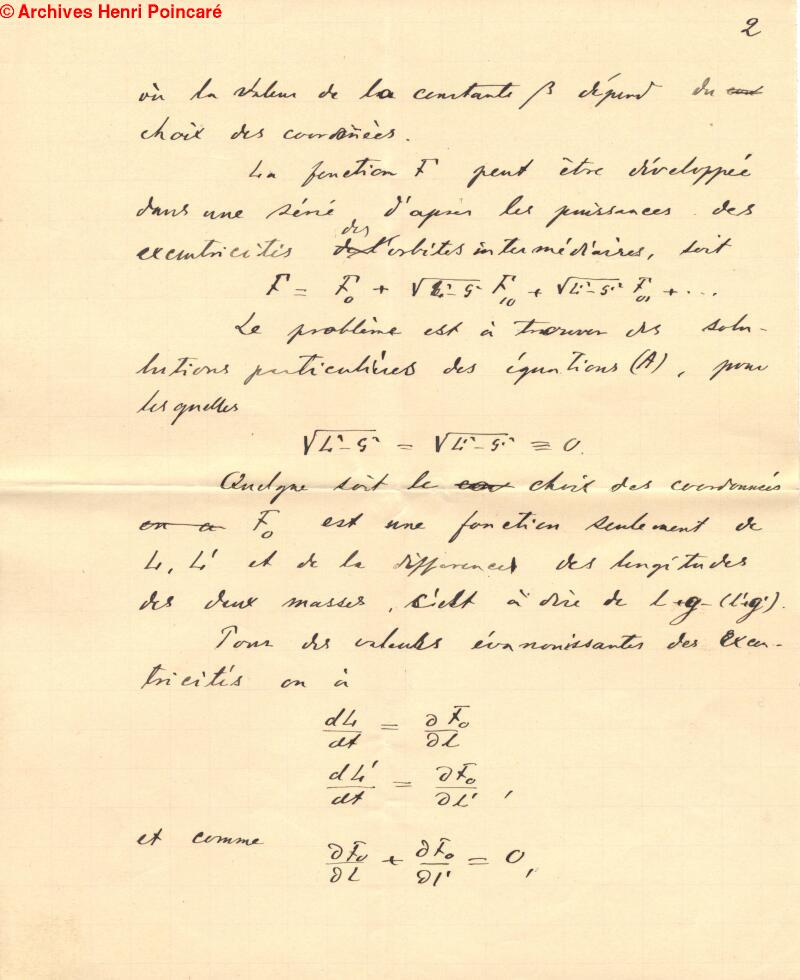 © Archives Henri Poincaré
2
où la valeur de la constante β dépend du
choix des coordonnées.
La fonction F peut être développée
dans une série d'après les puissances des
excentricités des l'orbites intermédiaires, soit
F = F₀ + √L-G F₁₀ + √L'-G' F₀₁ + ...
Le problème est à trouver des solu-
lutions particulières des équations (A), pour
lesquelles
√L-G = √L'-G' ≡ 0.
Quelque soit le choix des coordonnées
on a F₀ est une fonction seulement de
L, L' et de la différence des longitudes
des deux masses, c'est à dire de l+g-(l'+g').
Pour des valeurs évanouissantes des excen-
tricités on à
dL/dt = ∂F₀/∂l
dL'/dt = ∂F₀/∂l' ,
et comme
∂F₀/∂l + ∂F₀/∂l' = 0,